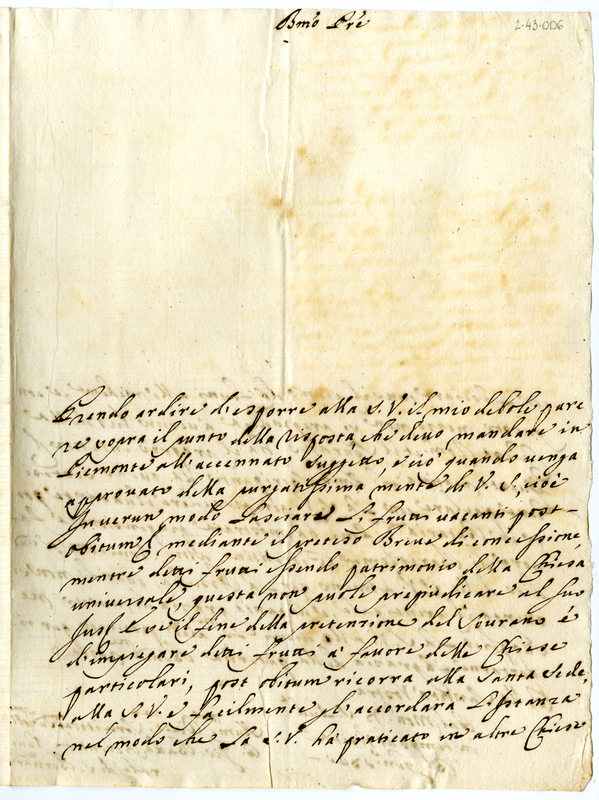 Bmo Pre
2-43-006
Prendo ardire d'esporre alla S. V. il mio debole pare
re sopra il punto della risposta, che devo mandare in
Piemonte all'accennato suggetto, e ciò quando venga
approvato della purgatissima mente di V. S., cioè
In verun modo lasciare li frutti vacanti post-
obitum mediante il preteso Breve di concessione,
mentre detti frutti essendo patrimonio della Chiesa
universale, questa non vuole pregiudicare al suo
Jus, e se il fine della pretenzione del Sovrano é
d'impiegare detti frutti à favore delle Chiese
particolari, post obitum ricorra alla Santa Sede,
alla S. V. e facilmente gl'accordarà l'istanza
nel modo che la S. V. ha praticato in altre Chiese